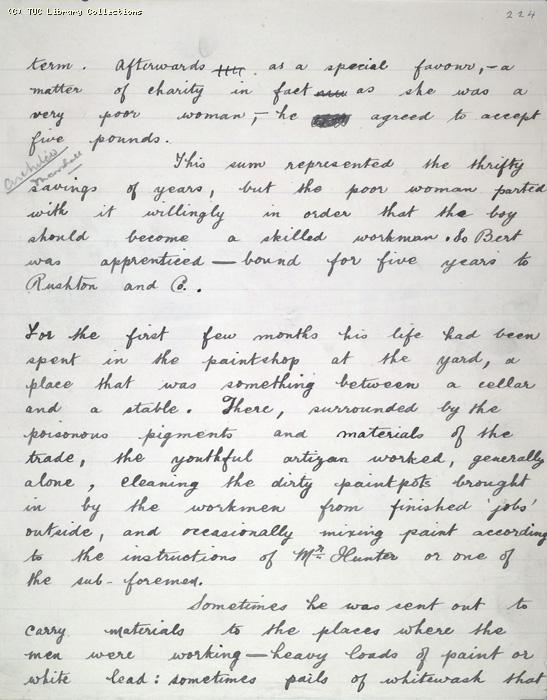 (C) TUC Library Collections
224
term. Afterwards as a special favour, – a
matter of charity in fact as she was a
very poor woman, – he agreed to accept
five pounds.
This sum represented the thrifty
savings of years, but the poor woman parted
with it willingly in order that the boy
should become a skilled workman. So Bert
was apprenticed — bound for five years to
Rushton and Co.
For the first few months his life had been
spent in the paintshop at the yard, a
place that was something between a cellar
and a stable. There, surrounded by the
poisonous pigments and materials of the
trade, the youthful artizan worked, generally
alone, cleaning the dirty paintpots brought
in by the workmen from finished 'jobs'
outside, and occasionally mixing paint according
to the instructions of Mr Hunter or one of
the sub-foremen.
Sometimes he was sent out to
carry materials to the places where the
men were working — heavy loads of paint or
white lead: sometimes pails of whitewash that